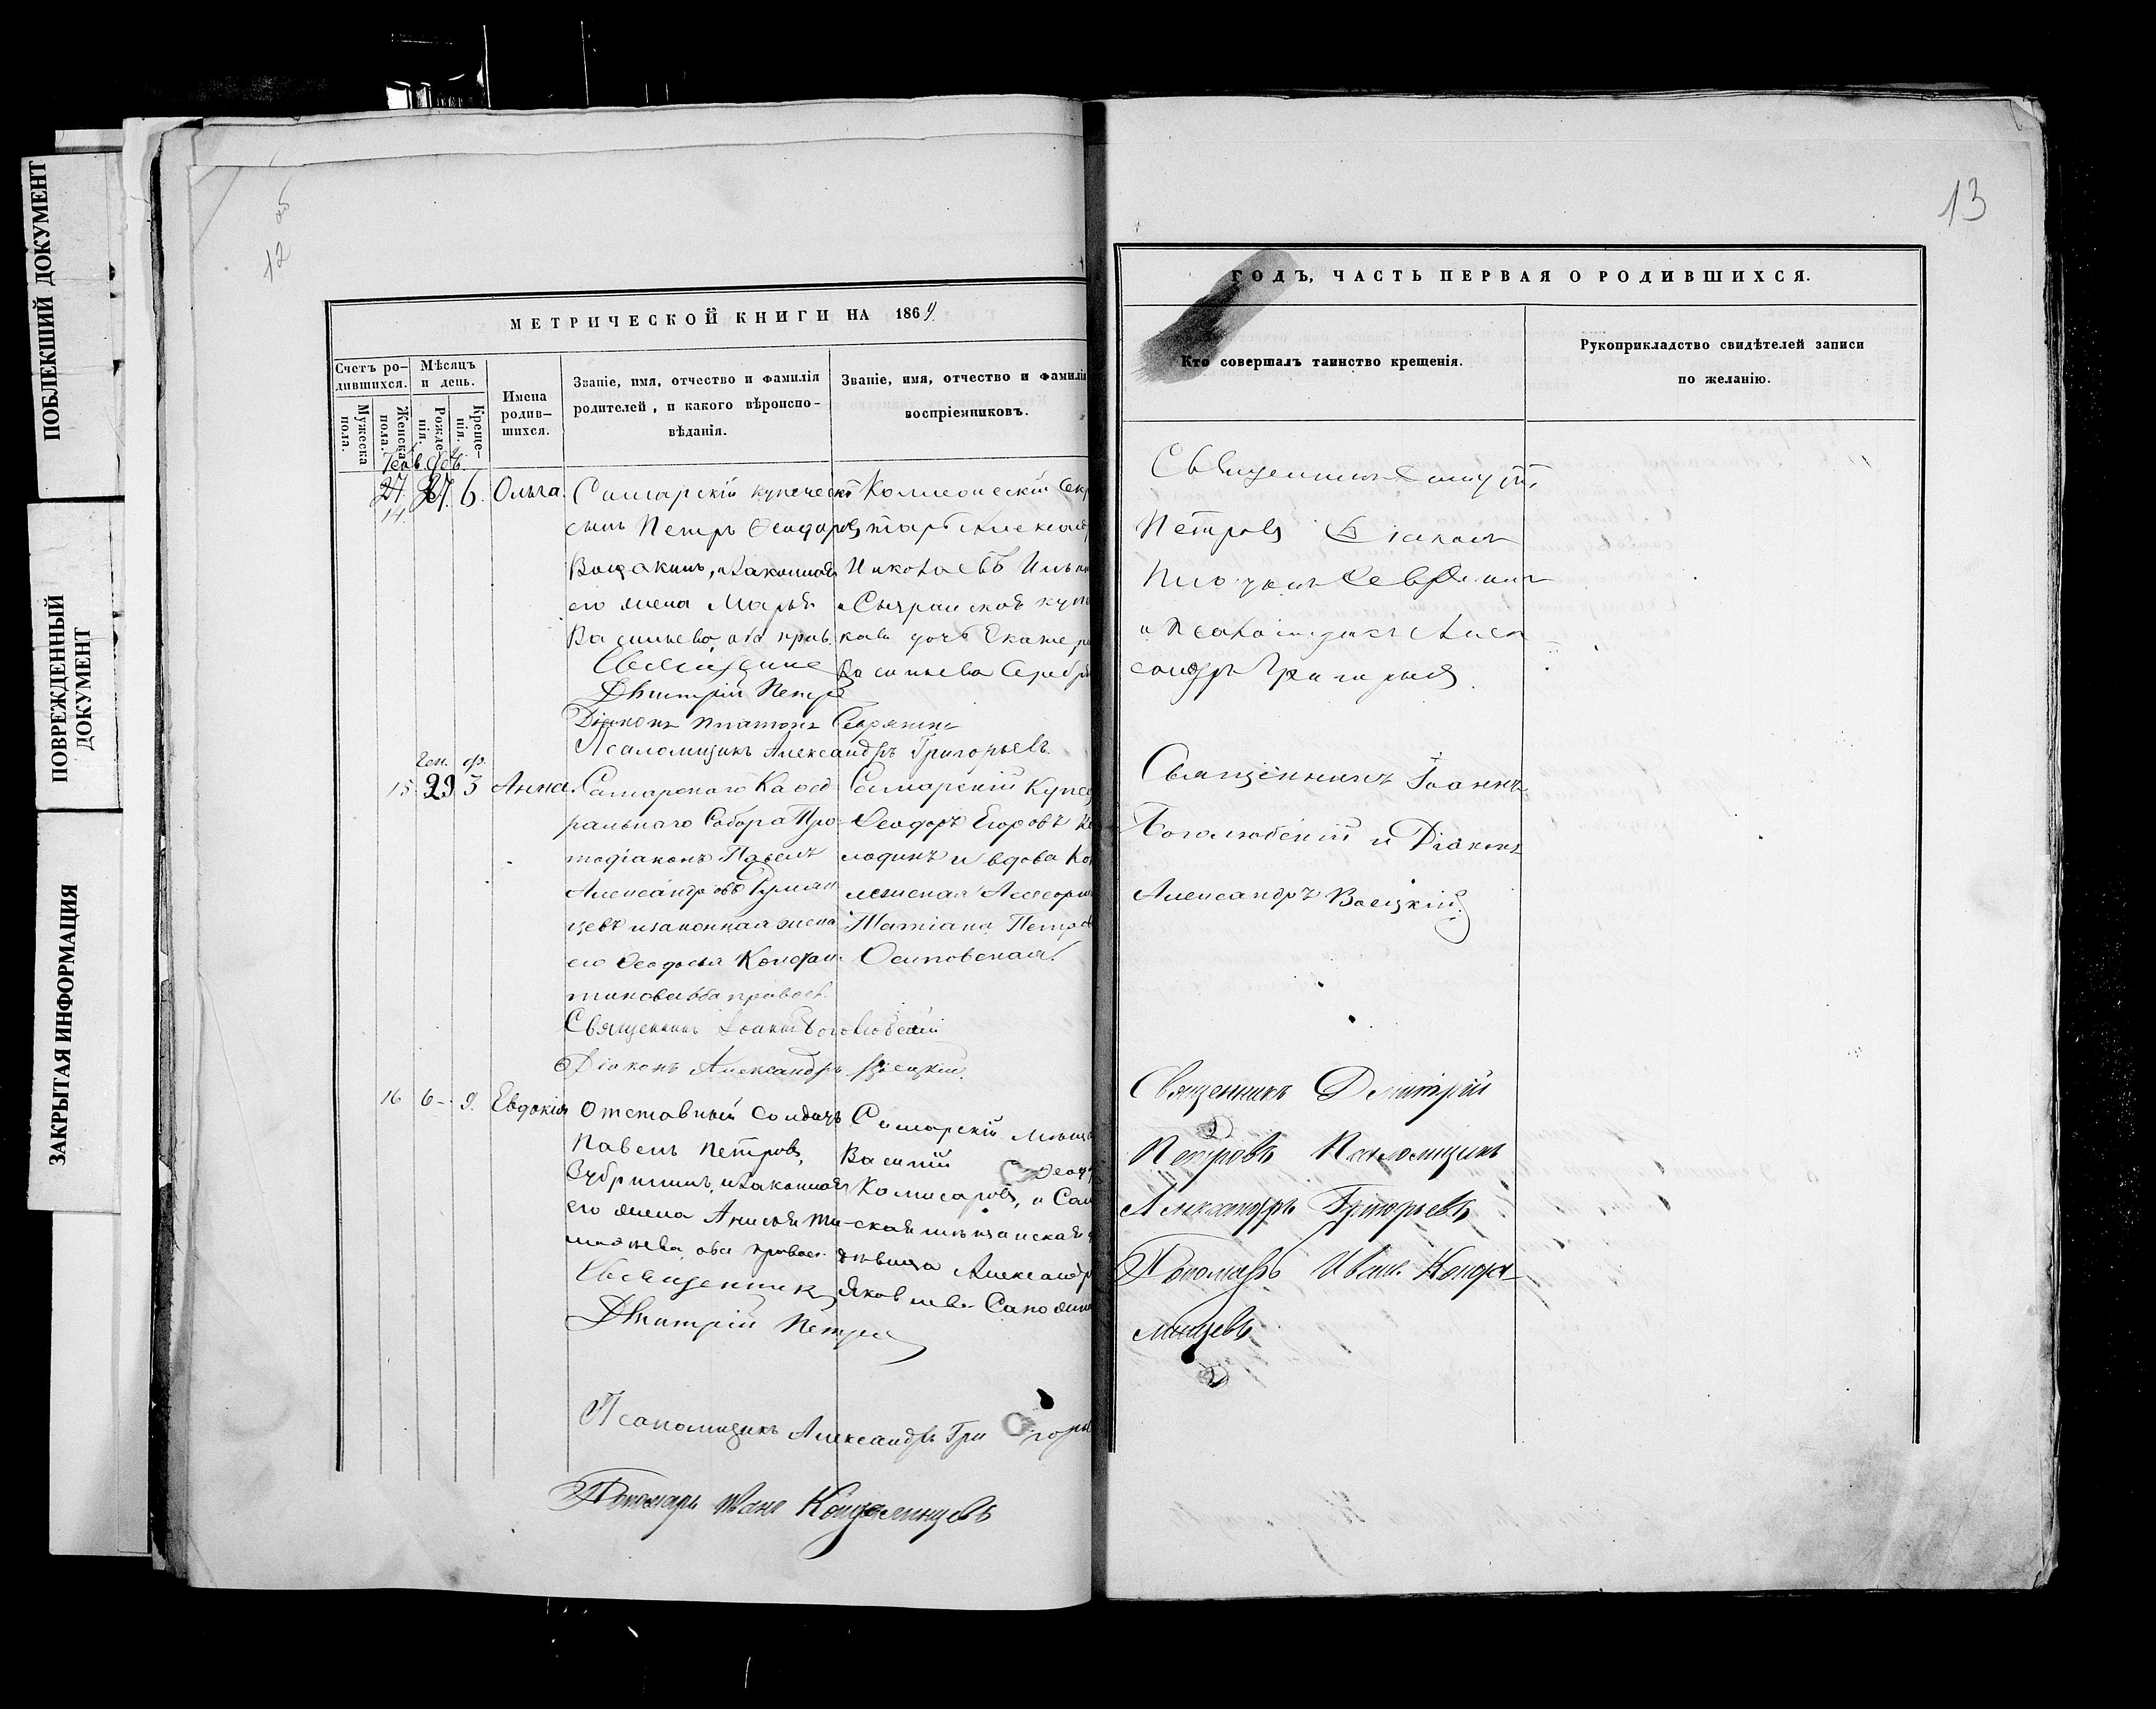 ПОБЛЕКШИЙ ДОКУМЕНТ
ПОВРЕЖДЕННЫЙ
ДОКУМЕНТ
ЗАКРЫТАЯ ИНФОРМАЦИЯ
12 об
МЕТРИЧЕСКОЙ КНИГИ НА 1864
Счетъ ро-
дившихся.
Мужеска
пола.
Женска
пола.
Мѣсяцъ
и день.
Рожде-
нія.
Креще-
нія.
Имена
родив-
шихся.
Званіе, имя, отчество и фамилія
родителей, и какого вѣроиспо-
вѣданія.
Званіе, имя, отчество и фамилія
воспріемниковъ.
14. 27. 6. Ольга.
Самарскій купеческій
сынъ Петръ Ѳеодоровъ
Вощакинъ, и законная
его жена Марья
Васильева, оба прав.
Священникъ
Дмитрій Петр
Діаконъ Платонъ
Псаломщикъ Александръ Григорьевъ
Коллежскій Секр
тарь Александр
Николаевъ Ильин
Сызранская куп
кая дочь Екатери
Васильева Серебр
Ген. ф.
15 29 3 Анна.
Самарскаго Каѳед
ральнаго Собора Про-
тодіаконъ Павелъ
Александровъ Румян
цевъ и законная жена
его Ѳеодосья Констан
тинова оба правосл.
Священникъ Іоаннъ Боголюбскій
Діаконъ Александръ
Самарскій Купец
Ѳеодоръ Егоровъ
лодинъ и вдова Кол
лежская Ассесорш
Татіана Петров
Осиповская.
16 6 9. Евдокія
Отставный солдатъ
Павелъ Петровъ,
и законная
его жена Анисья Ти-
моѳеева, оба правосл.
Священникъ
Дмитрій Петр
Самарскій мѣща
Василій Ѳеод
Комисаровъ, и Сам
ская мѣщанская
дѣвица Александр
Яковлева Сапожни
Псаломщикъ Александръ Григорье
Пономарь Иванъ Кондалинцевъ
13
ГОДЪ, ЧАСТЬ ПЕРВАЯ О РОДИВШИХСЯ.
Кто совершалъ таинство крещенія.
Рукоприкладство свидѣтелей записи
по желанію.
Священникъ
Петровъ Діаконъ
и Псаломщикъ Алек
сандръ Григорьевъ.
Священникъ Іоаннъ
Боголюбскій и Діаконъ
Александръ
Священникъ Дмитрій
Петровъ Псаломщикъ
Александръ Григорьевъ
Пономарь Иванъ Конда-
линцевъ